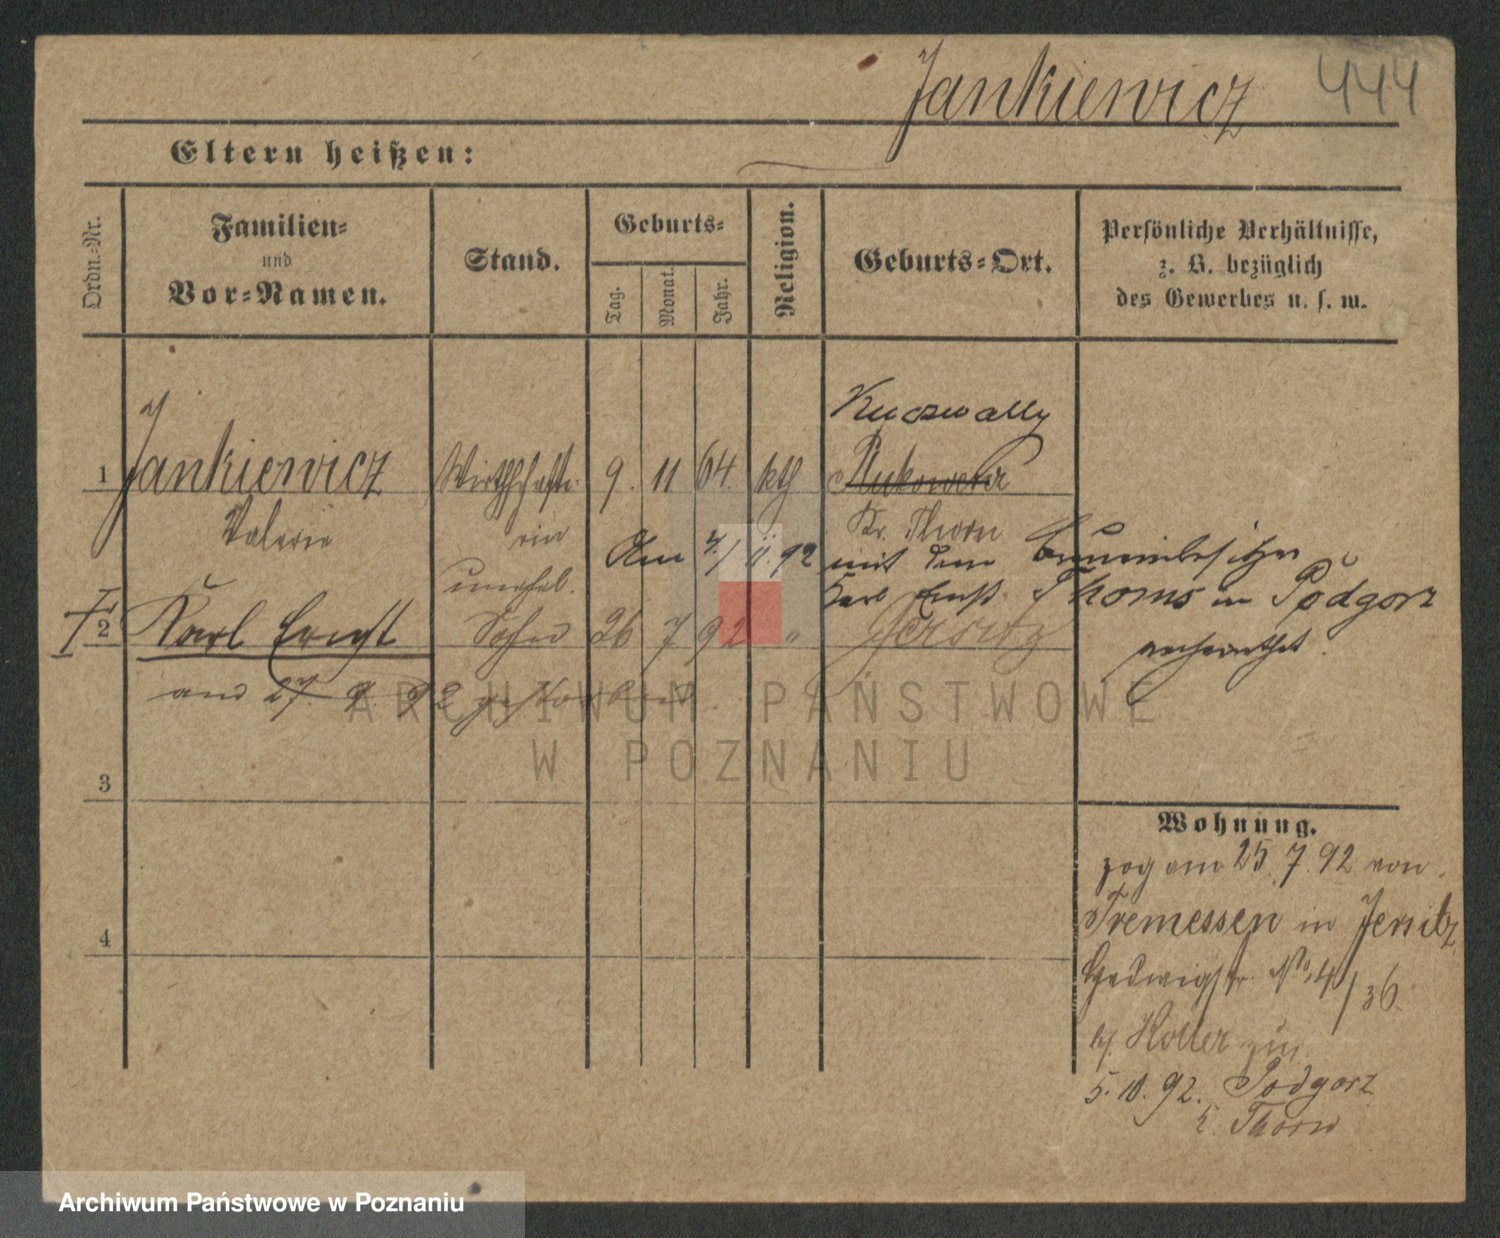 Jankiewicz 444
Eltern heißen:
Ordn.-Nr.
Familien-
und
Vor-Namen.
Stand.
Geburts-
Tag.
Monat.
Jahr.
Religion.
Geburts-Ort.
Persönliche Verhältnisse,
z. B. bezüglich
des Gewerbes u. s. w.
Kuczwally
1 Jankiewicz Wirthschafte- 9. 11 64. kth
Valerie rin Kr. Thorn
Am 4/11.92 mit dem
unehel. Karl Ernst Thoms in Podgorz
verheirathet.
2 Karl Ernst Sohn 26 7 92 " Jersitz
am 27. 9 92 gestorben.
3
4
Wohnung.
zog am 25.7.92 von
Tremessen in Jersitz
Hedwigstr. No 4/36
b/. Koller
5.10.92. Podgorz
K. Thorn
ARCHIWUM PAŃSTWOWE
W POZNANIU
Archiwum Państwowe w Poznaniu